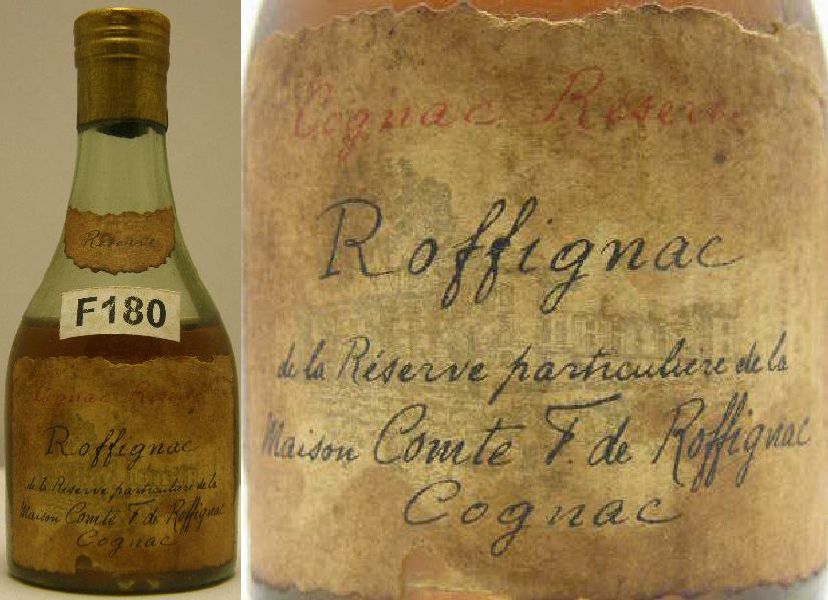 Réserve
F180
Cognac Réserve
Roffignac
de la Réserve particuliere de la
Maison Comte F. de Roffignac
Cognac
Cognac Réserve
Roffignac
de la Réserve particuliere de la
Maison Comte F. de Roffignac
Cognac